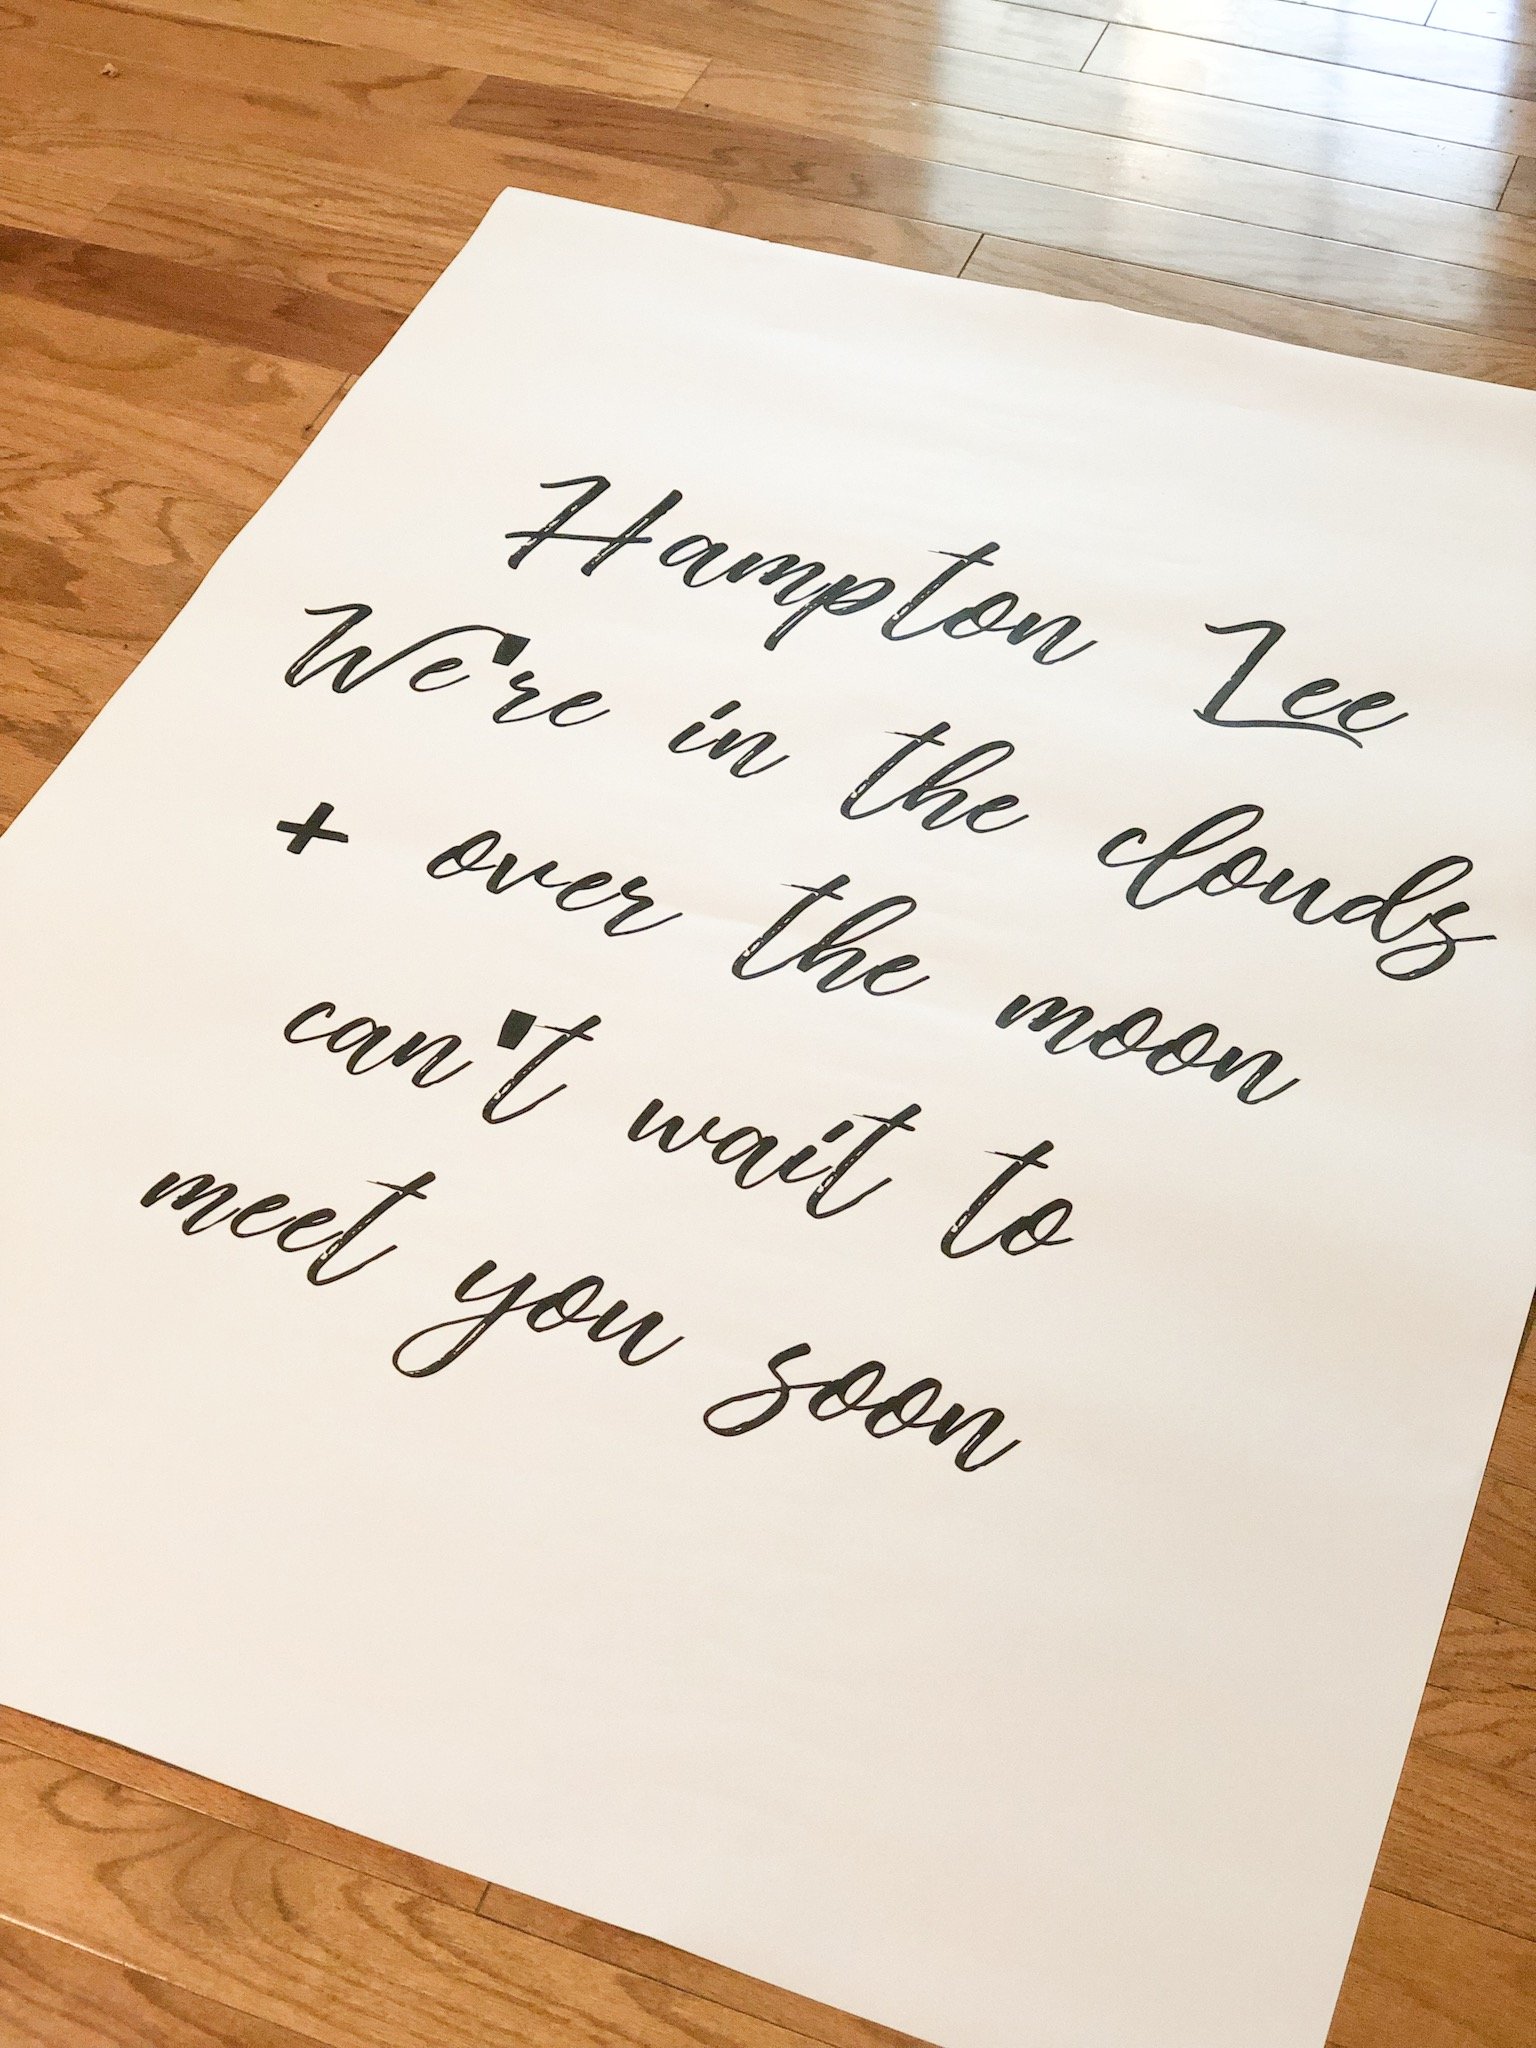 Hampton Lee
We're in the clouds
+ over the moon
can't wait to
meet you soon